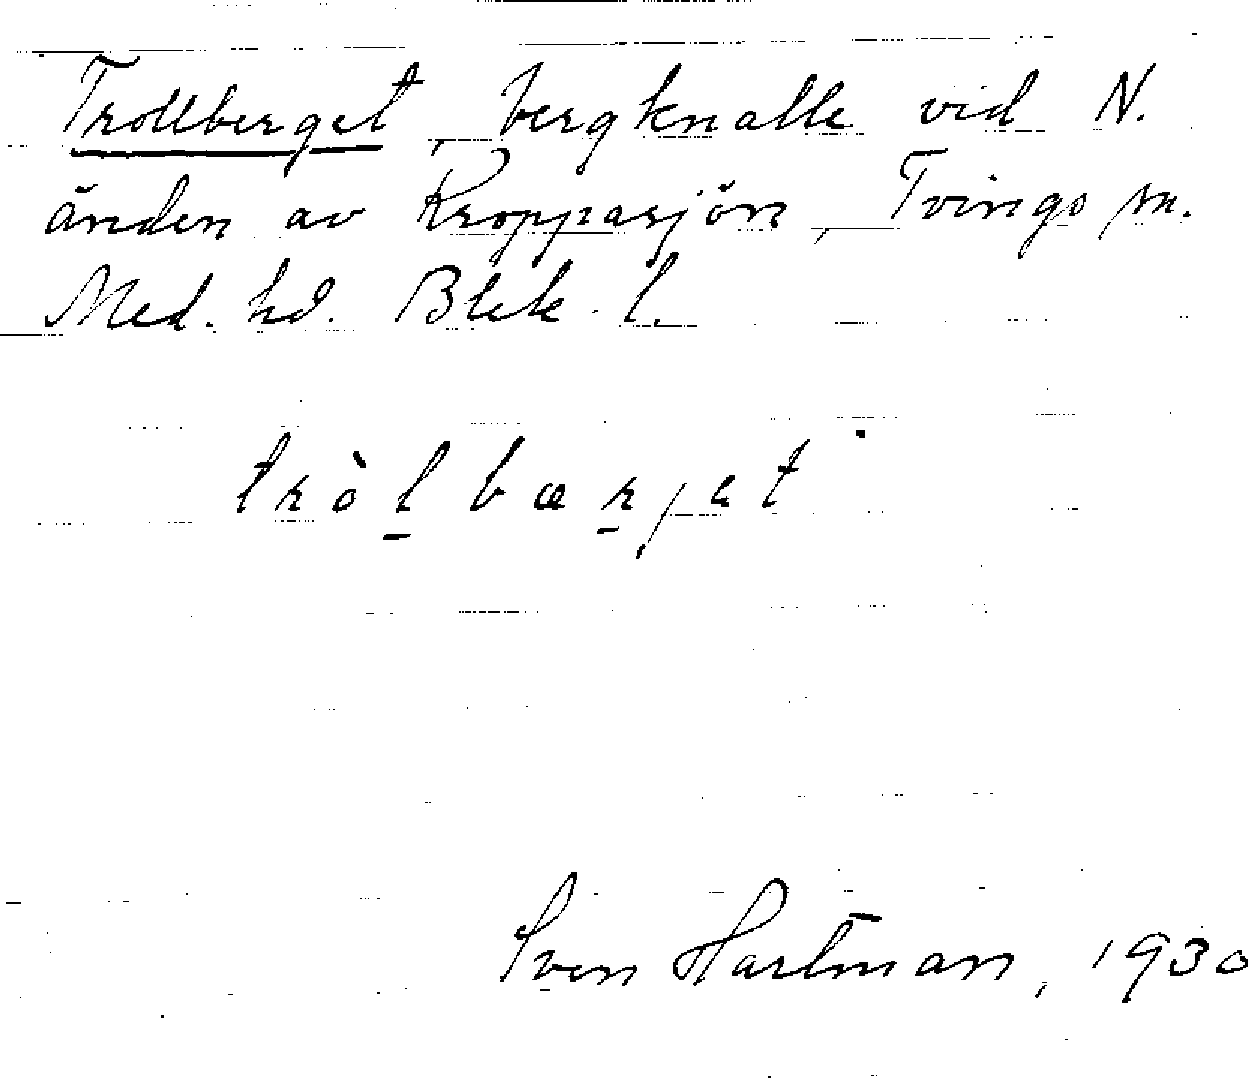 Trollberget, bergknalle vid N.
änden av Kroppasjön, Tvings sn.
Med. hd. Blek. l.
tròl̠bær̠jet
Sven Hartman, 1930